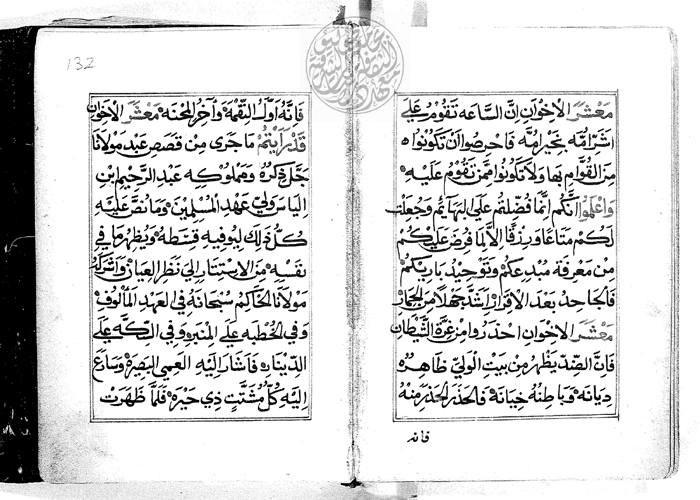 معشر الاخوان ان الساعه تقوم على
اشرّ امّه بخير امّه فاحرصوا ان تكونوا
من القوّام بها ولا تكونوا ممن تقوم عليه
واعلموا انكم انما فضلتم على البهايم وجعلت
لكم متاعا ورزقا الّا لما فرض عليكم
من معرفة مبدعكم وتوحيد باريكم
فالجاحد بعد الاقرار اشدّ جهلا من الحمار
معشر الاخوان احذروا من غرّة الشيطان
فانّ الضدّ يظهر من بيت الوليّ ظاهره
ديانه وباطنه خيانه فالحذر الحذر منه
فانه
132
فانّه اوّل النقمه وآخر المحنه معشر الاخوان
قد رايتم ما جرى من قصص عبد مولانا
جلّ ذكره ومملوكه عبد الرحيم بن
الياس وليّ عهد المسلمين وما نصّ عليه
كل ذلك ليوفيه قسطه ويظهر ما في
نفسه من الاستتار الى نظر العيان واشركه
مولانا الحاكم سبحانه في العهد المألوف
وفي الخطبه على المنبر وفي السكّه على
الدينار فاشار اليه العمى البصيره وسارع
اليه كلّ مشتّت ذي حيره فلمّا ظهرت